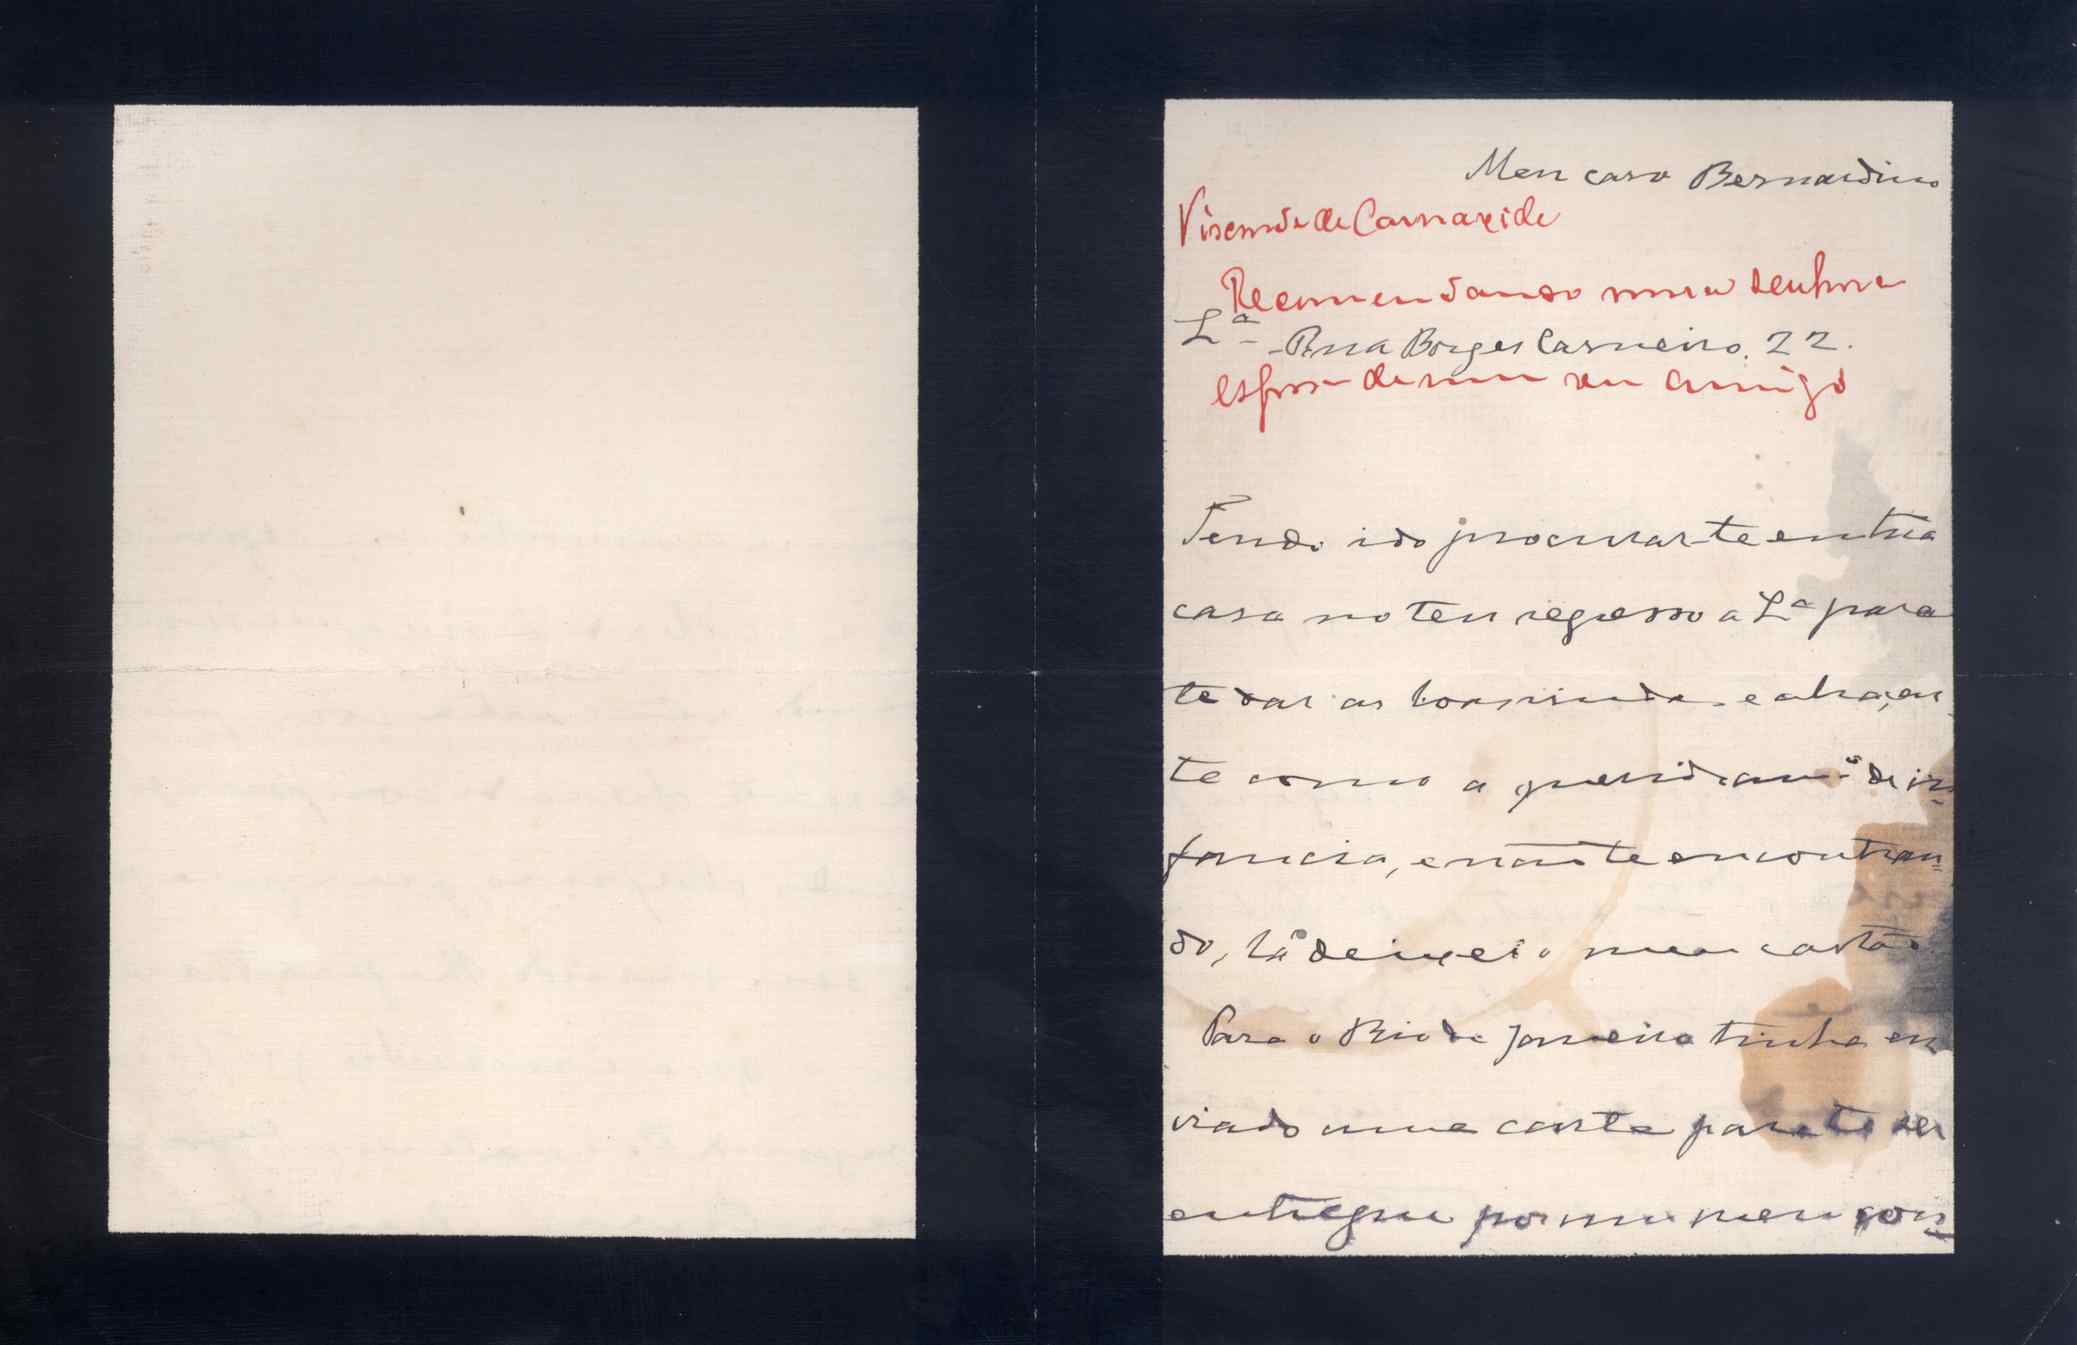 Meu caro Bernardino
Visconde de Carnaxide
Recomendando uma senhora
Lª - Rua Borges Carneiro. 22.
esposa de um seu amigo
Tendo ido procurar-te em tua
casa no teu regresso a Lª para
te dar as boas vindas e abraçar-
te como a querido amº de in-
fancia, e não te encontran-
do, lá deixei o meu cartão.
Para o Rio de Janeiro tinha en
viado uma carta para te ser
entregue por um meu con-